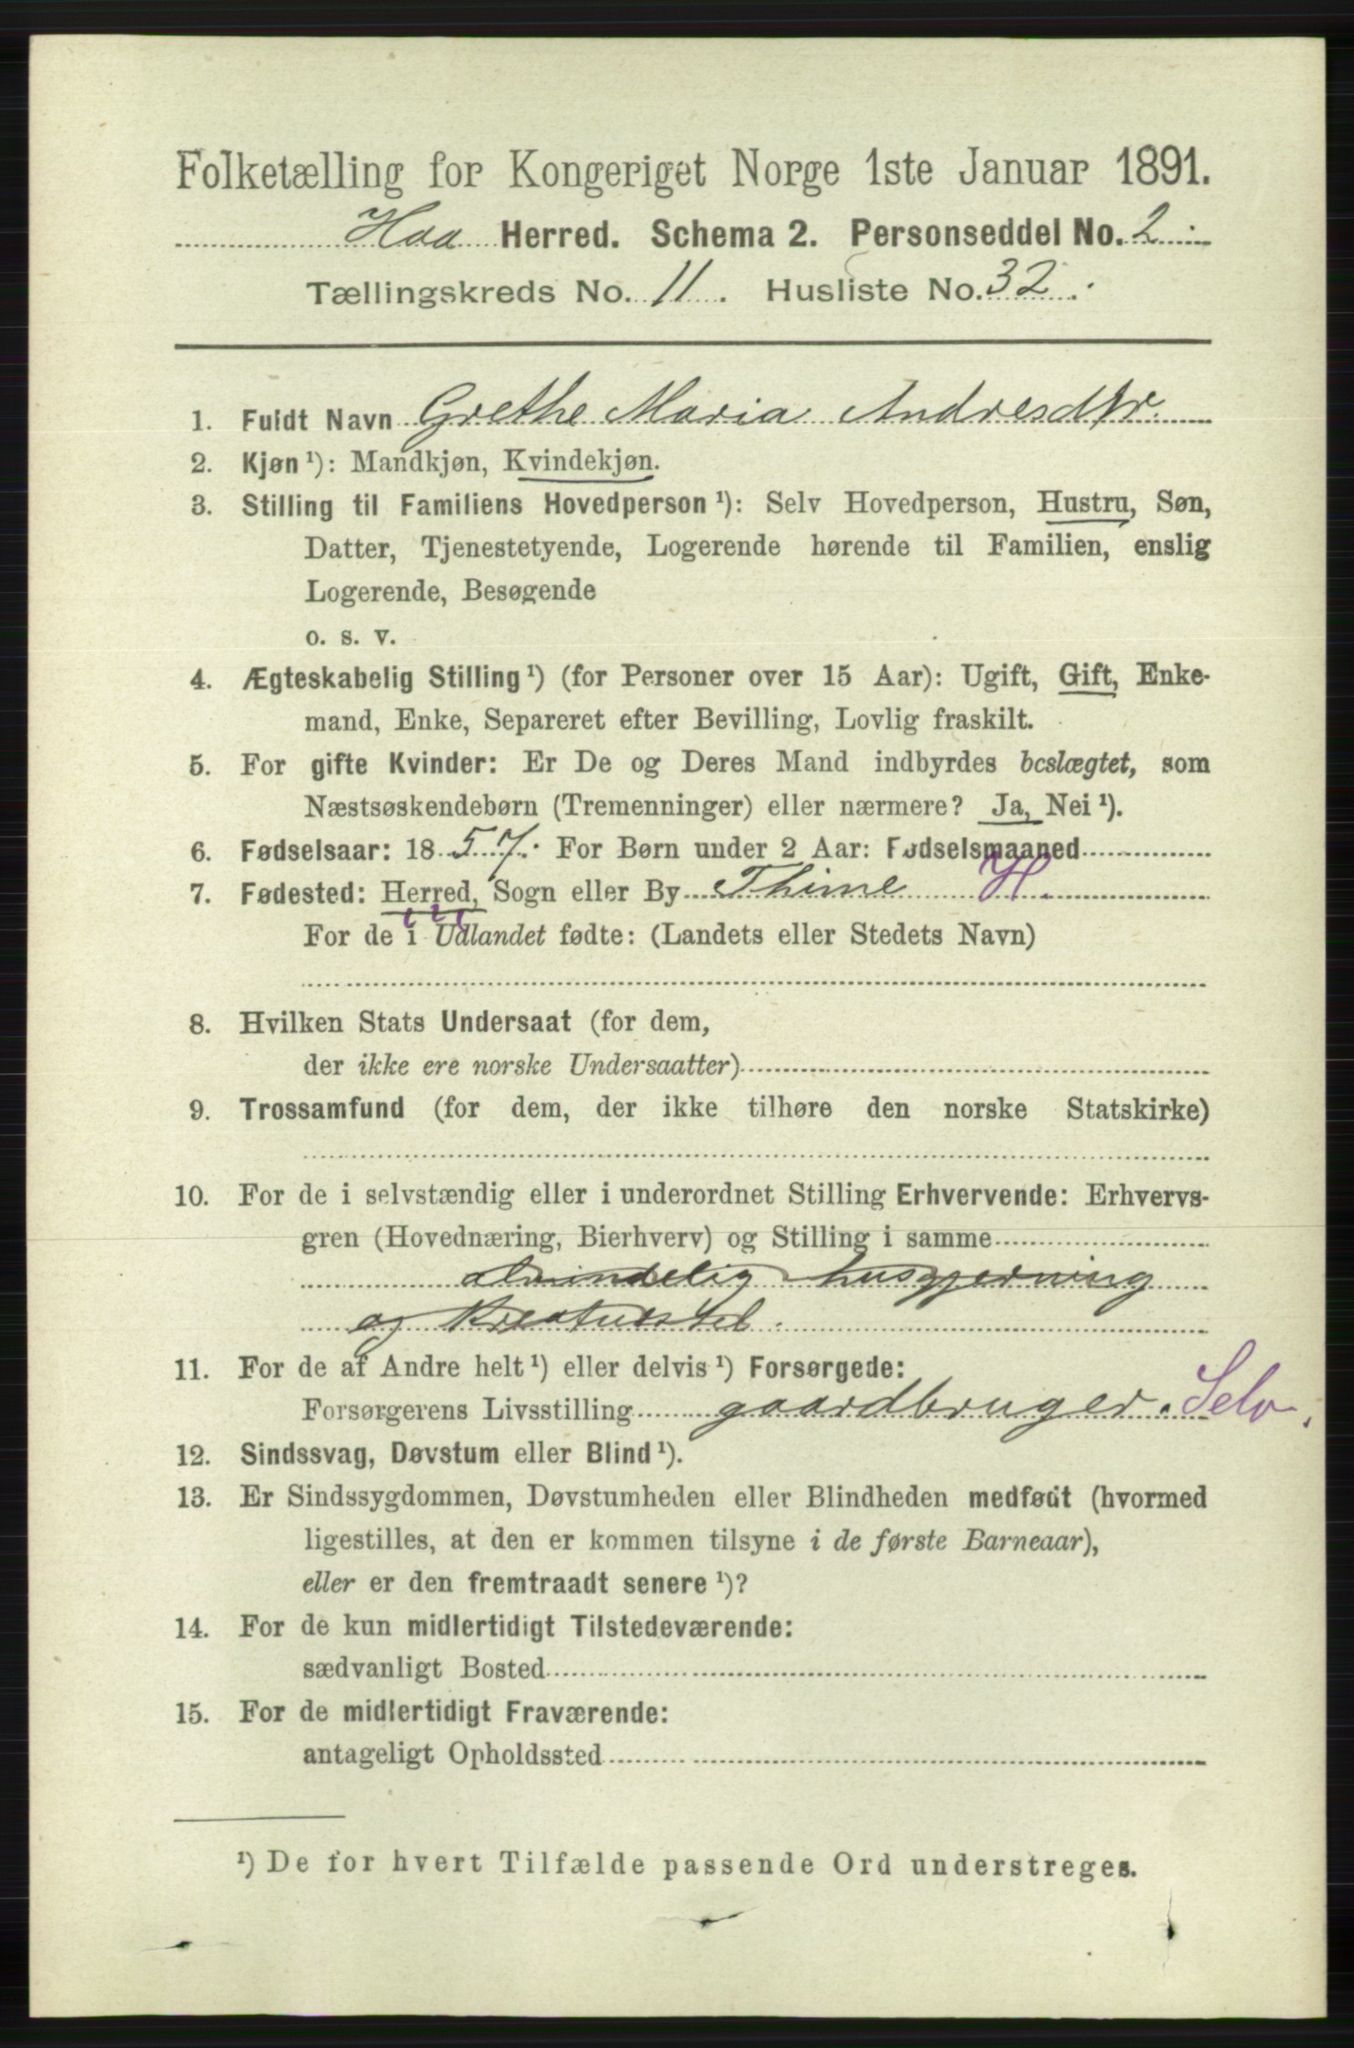 Folketælling for Kongeriget Norge 1ste Januar 1891.
Haa Herred. Schema 2. Personseddel No. 2
Tællingskreds No. 11. Husliste No. 32.
1. Fuldt Navn Grethe Maria Andresdtr.
2. Kjøn ¹): Mandkjøn, Kvindekjøn.
3. Stilling til Familiens Hovedperson ¹): Selv Hovedperson, Hustru, Søn,
Datter, Tjenestetyende, Logerende hørende til Familien, enslig
Logerende, Besøgende
o. s. v.
4. Ægteskabelig Stilling ¹) (for Personer over 15 Aar): Ugift, Gift, Enke-
mand, Enke, Separeret efter Bevilling, Lovlig fraskilt.
5. For gifte Kvinder: Er De og Deres Mand indbyrdes beslægtet, som
Næstsøskendebørn (Tremenninger) eller nærmere? Ja, Nei ¹).
6. Fødselsaar: 1857. For Børn under 2 Aar: Fødselsmaaned
7. Fødested: Herred, Sogn eller By Thime H.
For de i Udlandet fødte: (Landets eller Stedets Navn)
8. Hvilken Stats Undersaat (for dem,
der ikke ere norske Undersaatter)
9. Trossamfund (for dem, der ikke tilhøre den norske Statskirke)
10. For de i selvstændig eller i underordnet Stilling Erhvervende: Erhvervs-
gren (Hovednæring, Bierhverv) og Stilling i samme
almindelig husgjerning
og Kreaturstel.
11. For de af Andre helt ¹) eller delvis ¹) Forsørgede:
Forsørgerens Livsstilling gaardbruger. Selv.
12. Sindssvag, Døvstum eller Blind ¹).
13. Er Sindssygdommen, Døvstumheden eller Blindheden medfødt (hvormed
ligestilles, at den er kommen tilsyne i de første Barneaar),
eller er den fremtraadt senere ¹)?
14. For de kun midlertidigt Tilstedeværende:
sædvanligt Bosted
15. For de midlertidigt Fraværende:
antageligt Opholdssted
¹) De for hvert Tilfælde passende Ord understreges.